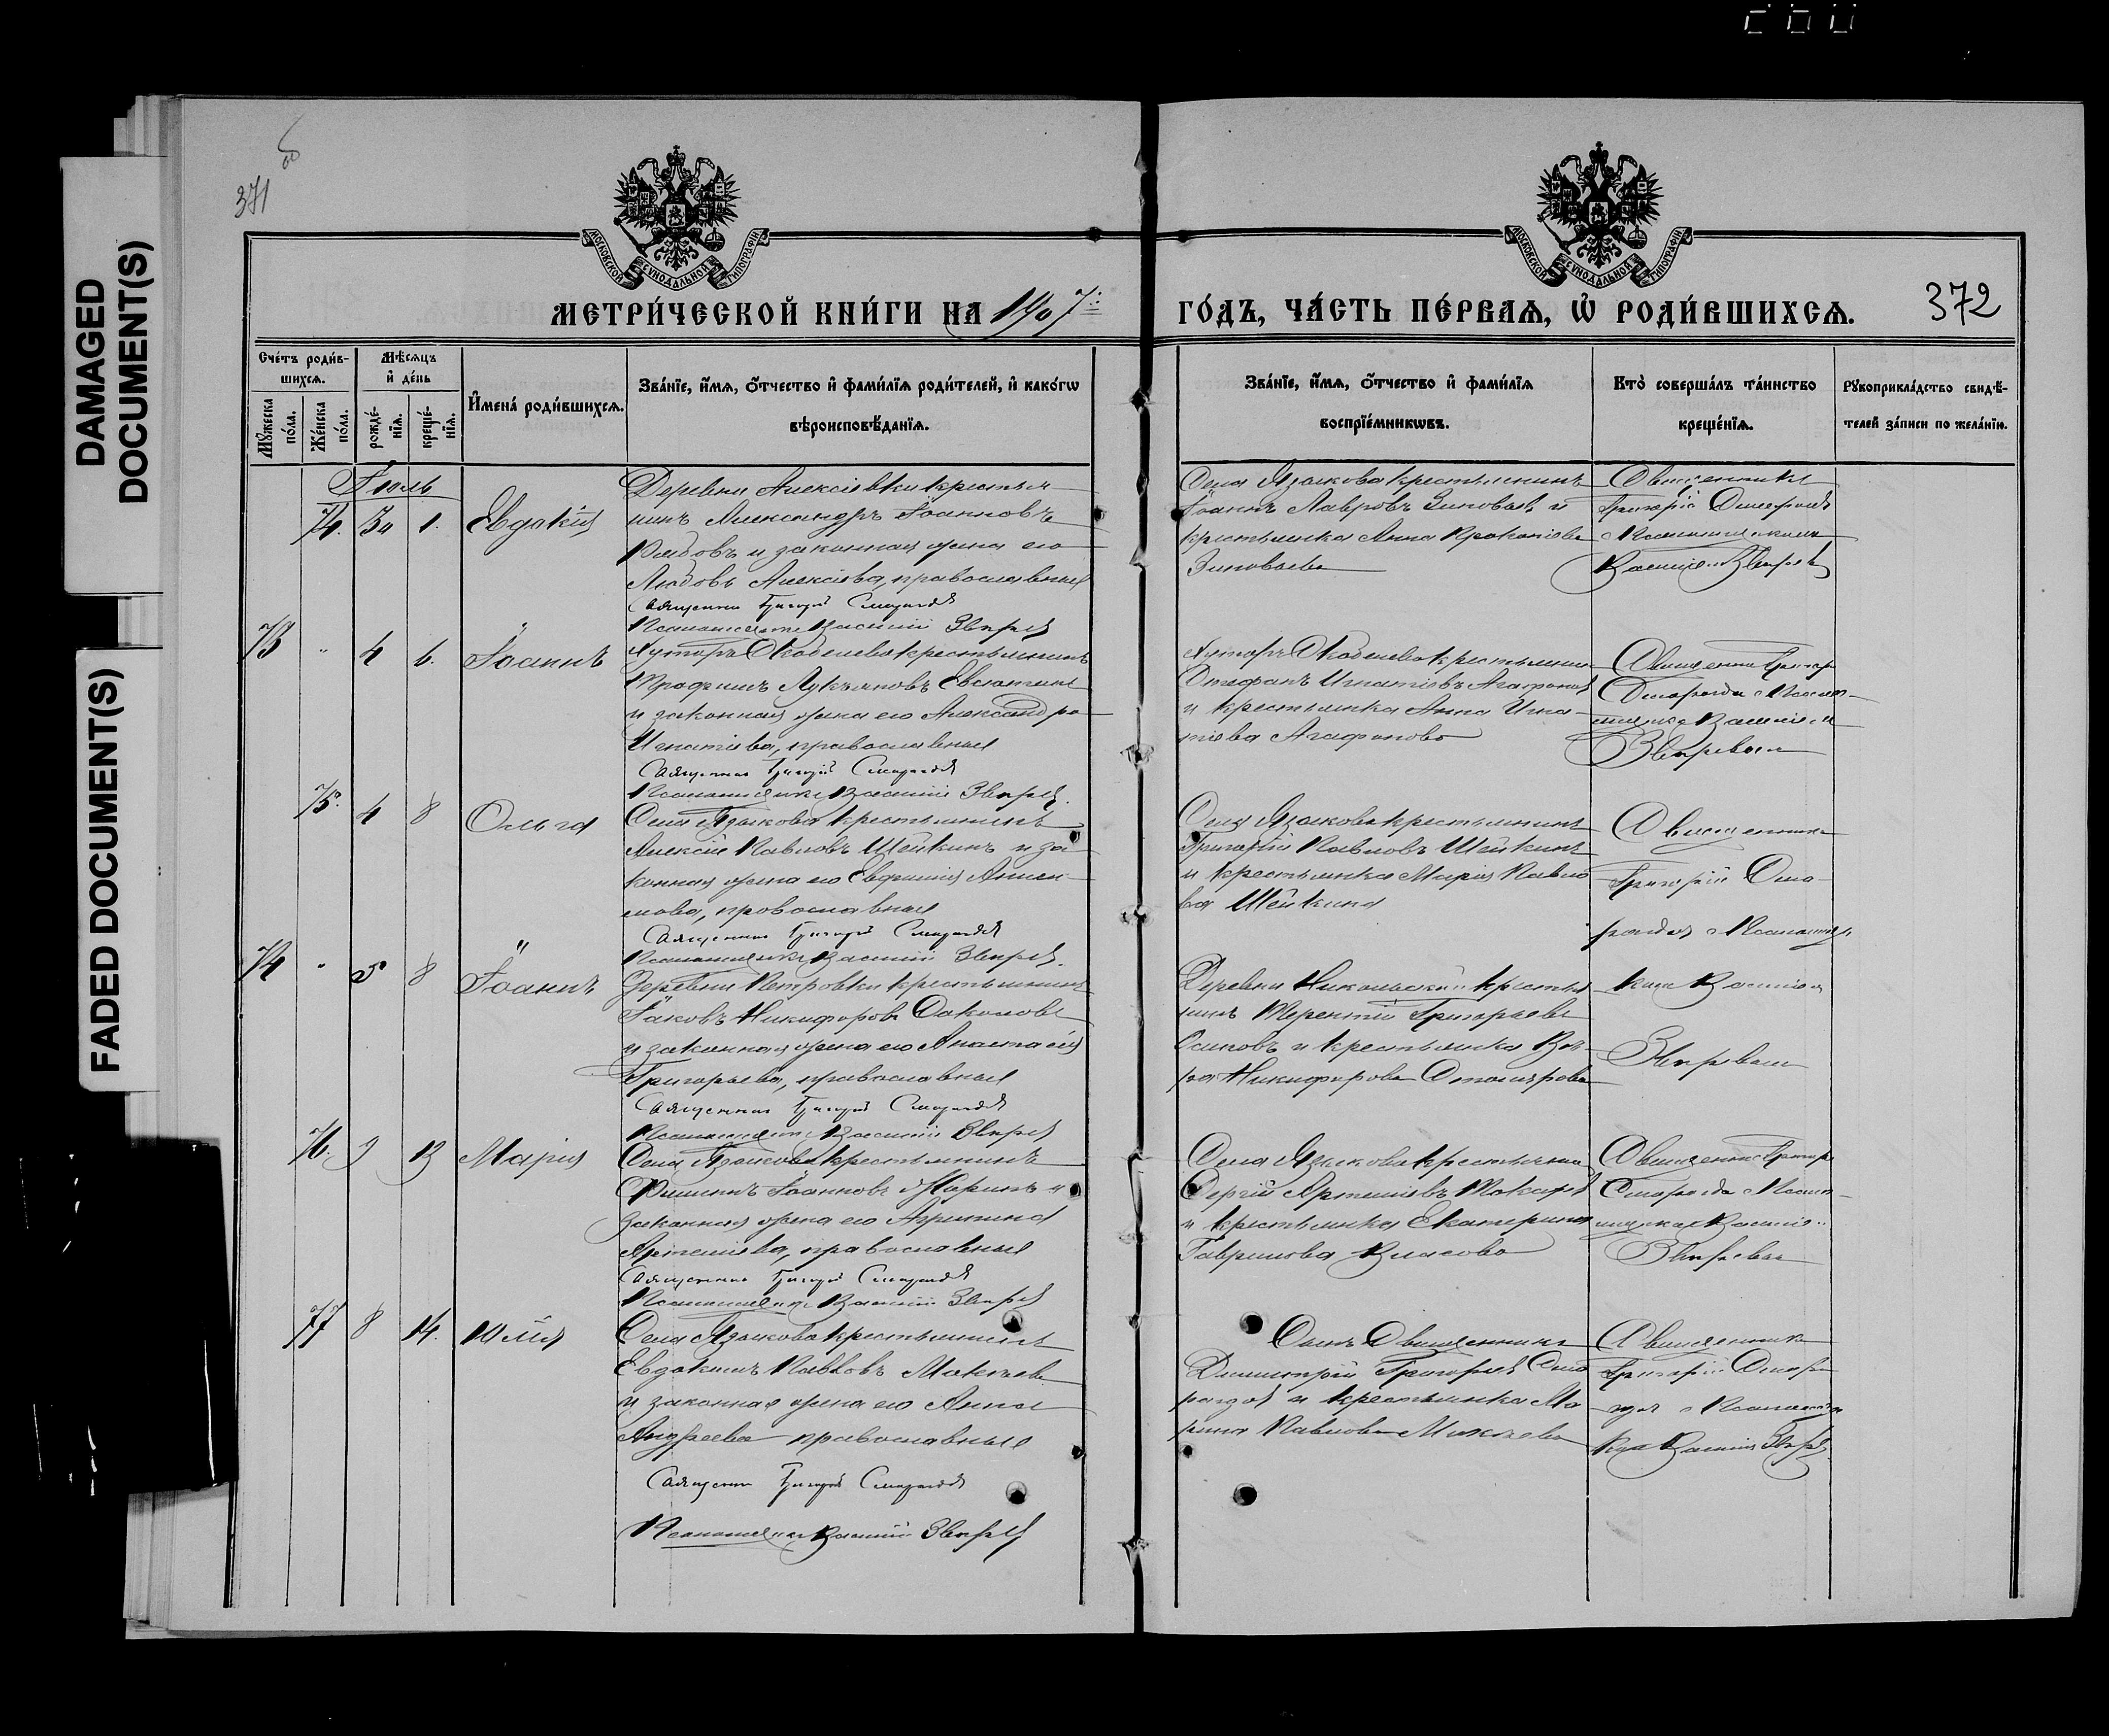 DAMAGED
DOCUMENT(S)
FADED DOCUMENT(S)
371
об
МОСКОВСКОЙ СѴНОДАЛЬНОЙ ТИПОГРАФІИ
МОСКОВСКОЙ СѴНОДАЛЬНОЙ ТИПОГРАФІИ
МЕТРИ́ЧЕСКОЙ КНИ́ГИ НА 1907 ГО́ДЪ, ЧА́СТЬ ПЕ́РВАѦ, Ѽ РОДИ́ВШИХСѦ.
372
Сче́тъ роди́в-
шихсѧ.
Мꙋ́жеска по́ла.
Же́нска по́ла.
Мѣ́сѧцъ
и҆ де́нь
рожде́-
нїѧ.
креще́-
нїѧ.
И҆мена̀ роди́вшихсѧ.
Зва́нїе, и҆́мѧ, ѻ҆́тчество и҆ фами́лїѧ роди́телей, и҆ како́гѡ
вѣроисповѣ́данїѧ.
Зва́нїе, и҆́мѧ, ѻ҆́тчество и҆ фами́лїѧ
воспрїе́мникѡвъ.
Кто̀ соверша́лъ та́инство
креще́нїѧ.
Рꙋкоприкла́дство свидѣ́-
телей за́писи по жела́нїю.
Іюль
74. 30 1. Евдокія
Деревни Алексіевки крестья
нинъ Александръ Іоанновъ
Рябовъ и законная жена его
Любовь Алексіева, православные
Священник Григорій Смарагдов
Псаломщикъ Василій Зверев
Села Языкова крестьянинъ
Іоаннъ Лавровъ Зиновьев и
крестьянка Анна Прокопіева
Зиновьева
Священникъ
Григорій Смарагдов
Псаломщикъ
Василій Зверев
73 " 4 6. Іоаннъ
Хуторъ Скобелева крестьянинъ
Трофимъ Лукьяновъ Евсютин
и законная жена его Александра
Игнатіева, православные
Священник Григорій Смарагдов
Псаломщикъ Василій Зверев.
Хуторъ Скобелева крестьянин
Стефанъ Игнатіевъ Агафонов
и крестьянка Анна Игна-
тіева Агафонова
Священник Григор
Смарагдов Псалом-
щик Василій
Зверев
75. 4 8 Ольга
Села Языкова крестьянинъ
Алексій Павловъ Шейкинъ и за
конная жена его Евфимія
православные
Священник Григорій Смарагдов
Псаломщикъ Василій Зверев.
Села Языкова крестьянинъ
Григорій Павловъ Шейкинъ
и крестьянка Марія Павло
ва Шейкина
Священник
Григорій Сма-
рагдов Псаломщ
74 " 5 8 Іоаннъ
Деревни Петровки крестьянинъ
Іаковъ Никифоровъ Соколовъ
и законная жена его Анастасія
Григорьева, православные
Священник Григорій Смарагдов
Псаломщикъ Василій Зверев
Деревни Никольской крестья
нинъ Терентій Григорьевъ
Осиповъ и крестьянка Вар-
ра Никифорова
Василій
Зверев
76. 9 13 Марія
Села Языкова крестьянинъ
Филиппъ Іоанновъ Жаринъ и
законная жена его Агрипина
Артеміева, православные
Священник Григорій Смарагдов
Псаломщикъ Василій Зверев
Села Языкова крестьянин
Сергій Артеміевъ Токарев
и крестьянка Екатерина
Гавриилова Власова
Священник Григор
Смарагдов Псалом-
щик Василій
Зверев
77 8 14. Юлія
Села Языкова крестьянинъ
Евдокимъ Павловъ Мокшев
и законная жена его Анна
Андреева православные
Священник Григорій Смарагдов
Псаломщикъ Василій Зверев
Сынъ Священника
Димитрій Григорьев Сма
рагдов и крестьянка Ма
рина Павлова Мокшева
Священник
Григорій Смара
гдов Псаломщ
Василій Зверев